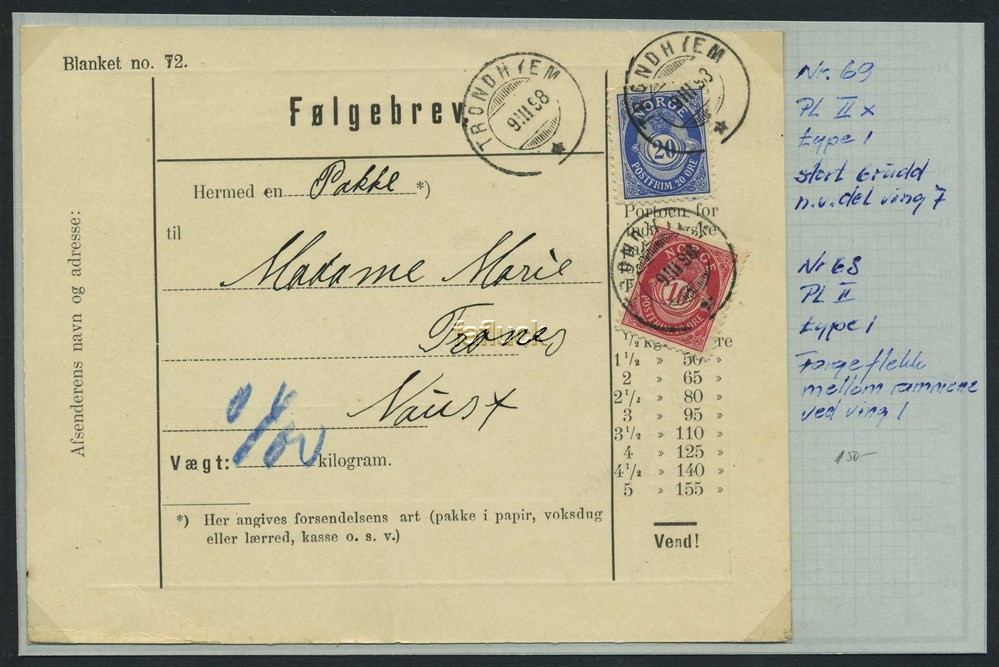 Blanket no. 72.
Følgebrev.
TRONDHJEM
9 III 98
TRONDHJEM
9 III 98
NORGE
20
POSTFRIM. 20 ØRE
Hermed en Pakke *)
til
Madame Marie
Trones
Naust
Vægt: kilogram.
*) Her angives forsendelsens art (pakke i papir, voksdug
eller lærred, kasse o. s. v.)
Afsenderens navn og adresse:
Portoen for
9 III 98
NORGE
10
POSTFRIM. 10 ØRE
1 1/2 » 50 »
2 » 65 »
2 1/2 » 80 »
3 » 95 »
3 1/2 » 110 »
4 » 125 »
4 1/2 » 140 »
5 » 155 »
Vend!
Nr. 69
Pl II x
type 1
stort brudd
n.v. del ving 7
Nr 68
Pl II
type 1
Fargeflekk
mellom rammene
ved ving 1
150-